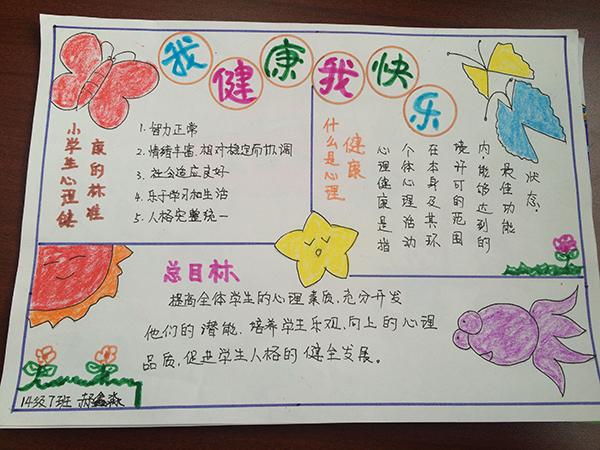 我健康我快乐
小学生心理健
康的标准
1. 智力正常
2. 情绪丰富、相对稳定而协调
3. 社会适应良好
4. 乐于学习和生活
5. 人格完整统一
什么是心理
健康
心理健康是指
个体心理活动
在本身及其环
境许可的范围
内,能够达到的
最佳功能
状态.
总目标
提高全体学生的心理素质,充分开发
他们的潜能,培养学生乐观、向上的心理
品质,促进学生人格的健全发展。
14级7班